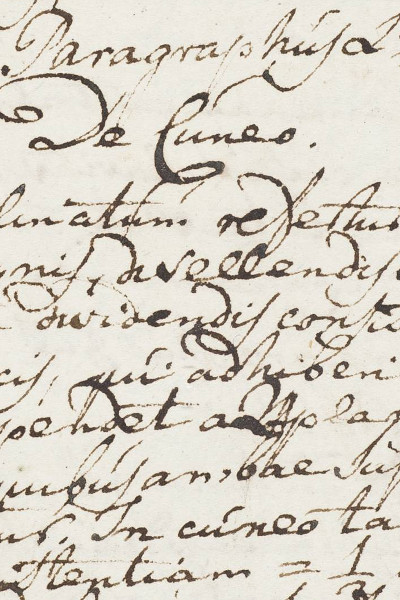 Paragraphús 2
De Cúneo.
linatúm refertur
gnis, divellendis
dividendis consid
cis, qui adhiberi
pendet a plag
quibús ambae sup
tur. In cúneo ta
ttentiam = 1